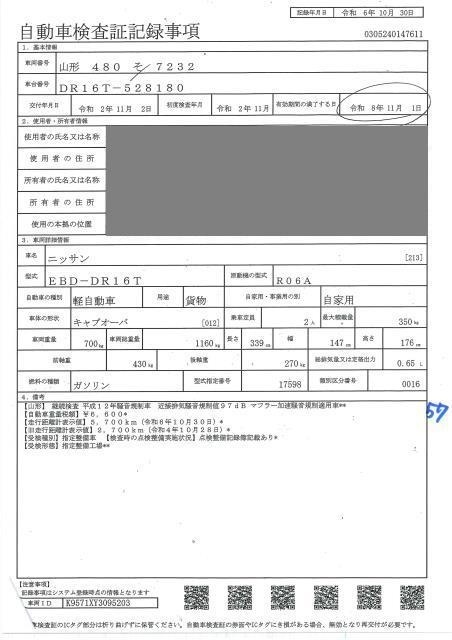 記録年月日 令和 6年10月30日
自動車検査証記録事項
0305240147611
1. 基本情報
車両番号 山形 480 そ 7232
車台番号 DR16T-528180
交付年月日 令和 2年11月 2日 初度検査年月 令和 2年11月 有効期間の満了する日 令和 8年11月 1日
2. 使用者・所有者情報
使用者の氏名又は名称
使用者の住所
所有者の氏名又は名称
所有者の住所
使用の本拠の位置
3. 車両詳細情報
車名 ニッサン [213]
型式 EBD-DR16T 原動機の型式 R06A
自動車の種別 軽自動車 用途 貨物 自家用・事業用の別 自家用
車体の形状 キャブオーバ [012] 乗車定員 2人 最大積載量 350kg
車両重量 700kg 車両総重量 1160kg 長さ 339cm 幅 147cm 高さ 176cm
前軸重 430kg 後軸重 270kg 総排気量又は定格出力 0.65 L
燃料の種類 ガソリン 型式指定番号 17598 類別区分番号 0016
4. 備考
[山形] 継続検査 平成12年騒音規制車 近接排気騒音規制値97dB マフラー加速騒音規制適用車**
【自動車重量税額】¥6,600*
【走行距離計表示値】5,700km(令和6年10月30日)*
【旧走行距離計表示値】2,700km(令和4年10月28日)*
【受検種別】指定整備車 【検査時の点検整備実施状況】点検整備記録簿記載あり*
【受検形態】指定整備工場**
57
【注意事項】
記録事項はシステム登録時点の情報となります
車両ID K9571XY3095203
車検査証のICタグ部分は折り曲げずに保管ください。自動車検査証の券面やICタグにき損がある場合、無効となり再交付が必要です。